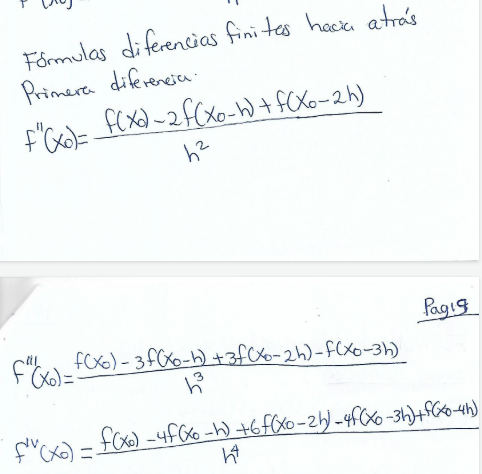 Fórmulas diferencias finitas hacia atrás
Primera diferencia.
f''(x₀)= f(x₀)-2f(x₀-h)+f(x₀-2h) / h²
Pag 19
f'''(x₀)= f(x₀)-3f(x₀-h)+3f(x₀-2h)-f(x₀-3h) / h³
fᴵⱽ(x₀)= f(x₀)-4f(x₀-h)+6f(x₀-2h)-4f(x₀-3h)+f(x₀-4h) / h⁴